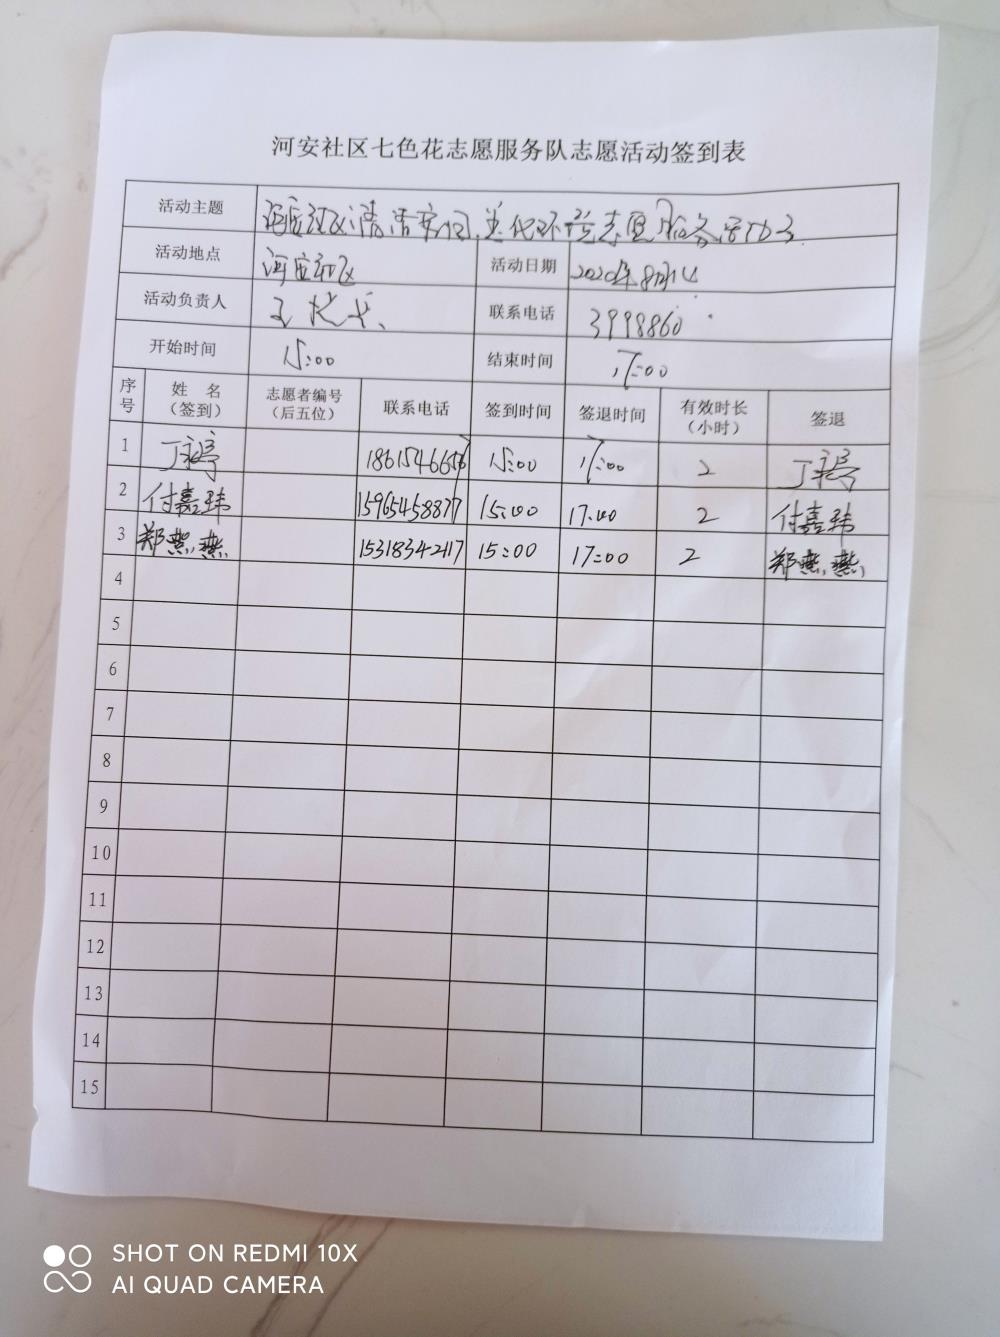 河安社区七色花志愿服务队志愿活动签到表
活动主题 河安社区清洁家园,美化环境志愿服务活动
活动地点 河安社区 活动日期 2020年8月
活动负责人 王 联系电话 3998860
开始时间 15:00 结束时间 17:00
序号 姓 名(签到) 志愿者编号(后五位) 联系电话 签到时间 签退时间 有效时长(小时) 签退
1 15:00 17:00 2
2 付嘉玮 15965458877 15:00 17:00 2 付嘉玮
3 郑燕燕 15318342117 15:00 17:00 2 郑燕燕
4
5
6
7
8
9
10
11
12
13
14
15
SHOT ON REDMI 10X
AI QUAD CAMERA